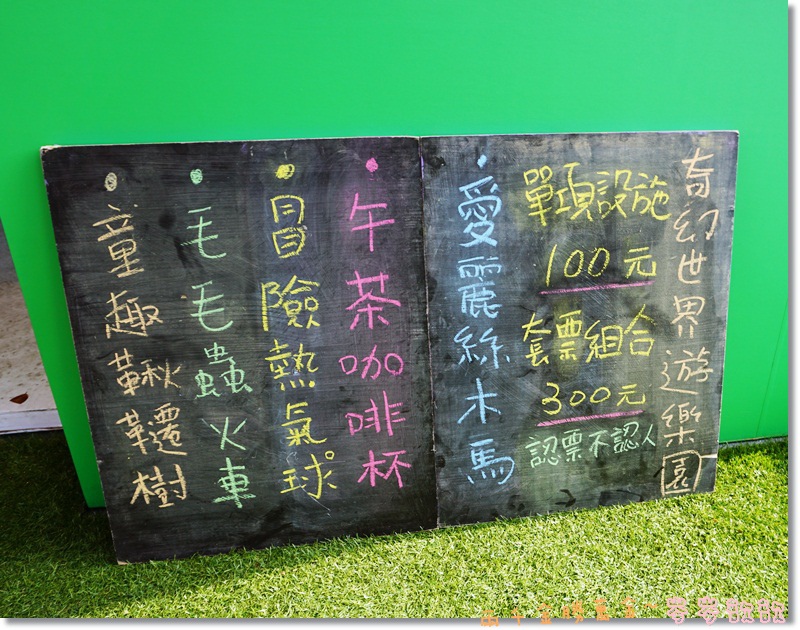 奇幻世界遊樂園
單項設施
100元
套票組合
300元
認票不認人
愛麗絲木馬
午茶咖啡杯
冒險熱氣球
毛毛蟲火車
童趣鞦韆樹